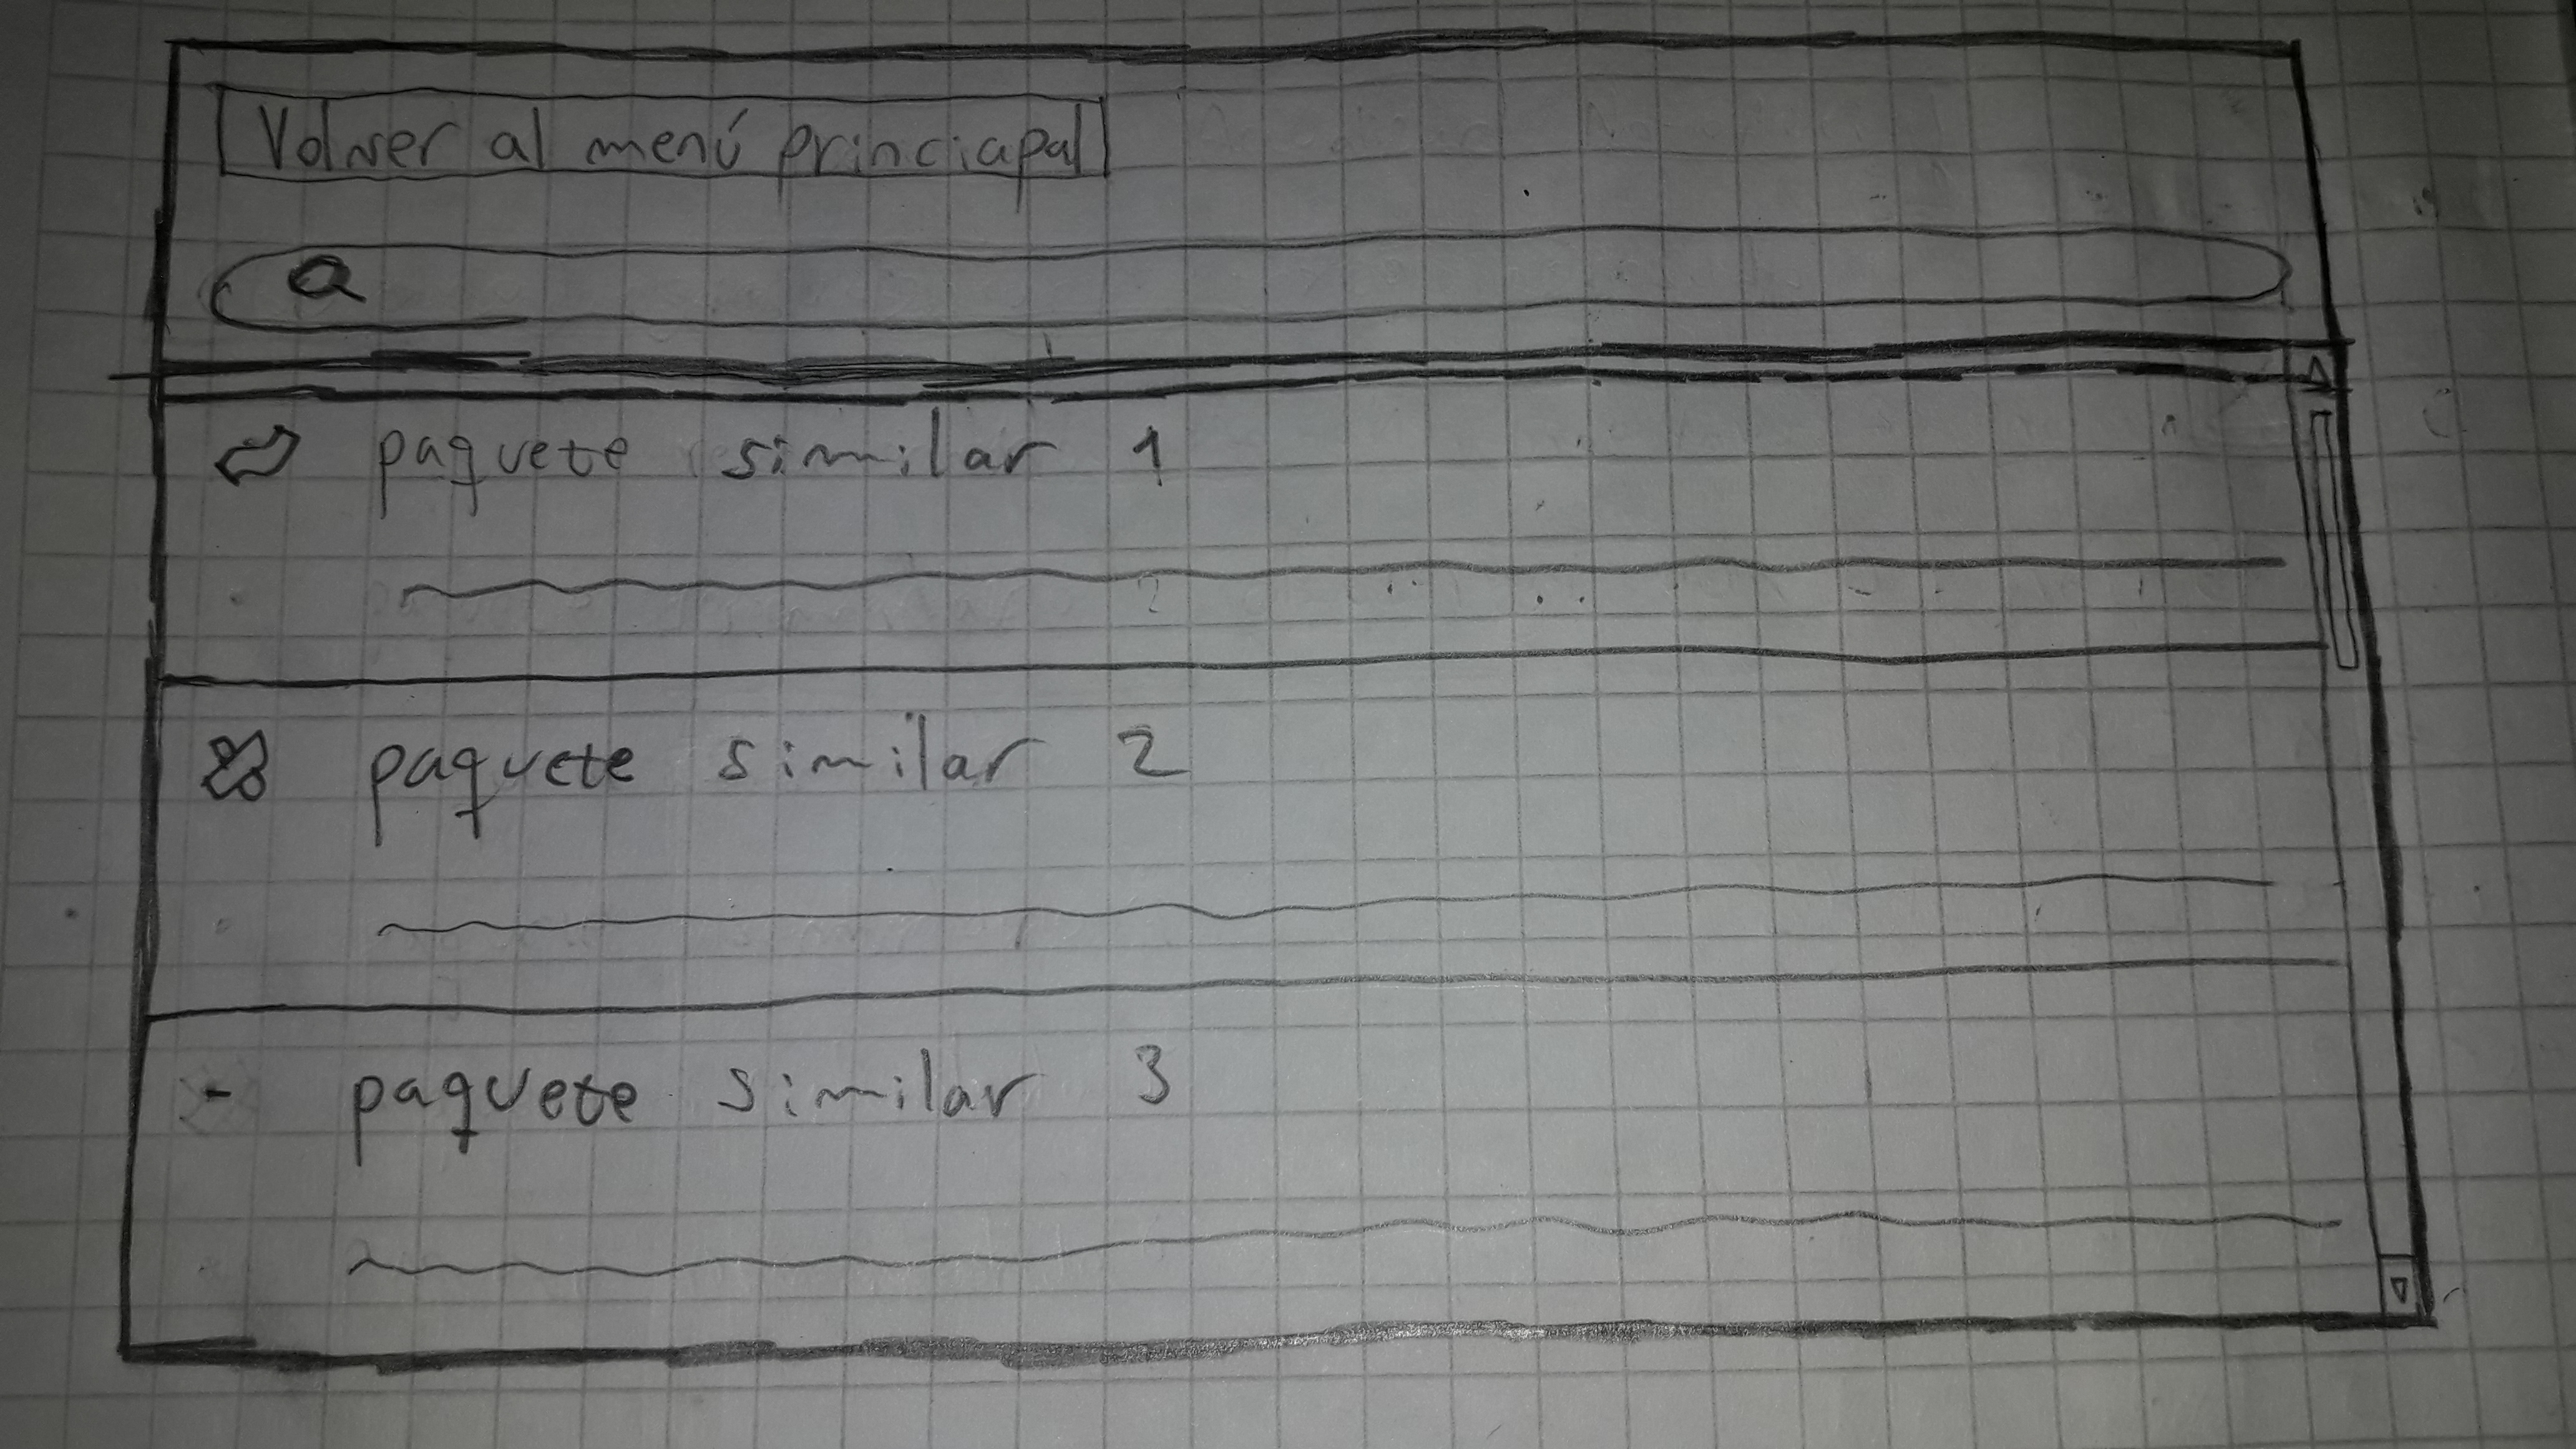 Volver al menú princiapal
paquete similar 1
paquete similar 2
- paquete similar 3